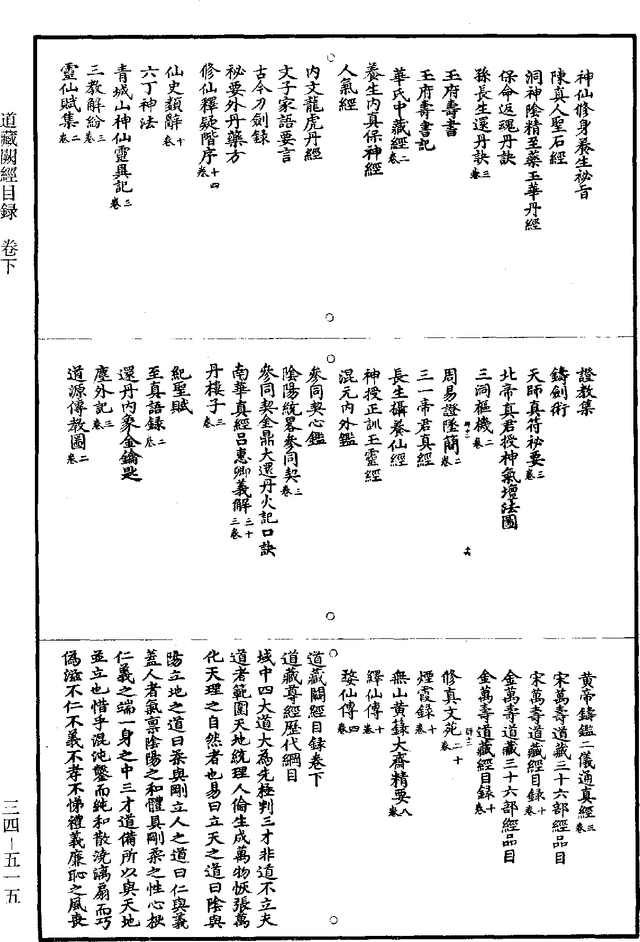 神仙修身養生祕旨
陳真人聖石經
洞神陰精至藥玉華丹經
保命返魂丹訣
孫長生還丹訣三卷
玉府壽書
玉府壽書記
華氏中藏經二卷
養生內真保神經
人氣經
內文龍虎丹經
文子家語要言
古今刀劍錄
祕要外丹藥方
修仙釋疑階序十四卷
仙史類辭十卷
六丁神法
青城山神仙靈異記三卷
三教解紛三卷
靈仙賦集二卷
證教集
鑄劍術
天師真符祕要三卷
北帝真君授神氣壇法圖
三洞樞機二卷
周易證墜簡二卷
三一帝君真經
長生攝養仙經
神授正訓玉靈經
混元內外鑑
參同契心鑑
陰陽統畧參同契三卷
參同契金鼎大還丹火記口訣
南華真經呂惠卿義解三十三卷
丹樓子三卷
紀聖賦
至真語錄二卷
還丹內象金鑰匙
塵外記三卷
道源傳教圖二卷
黃帝鑄鑑二儀通真經三卷
宋萬壽道藏三十六部經品目
宋萬壽道藏經目錄十卷
金萬壽道藏三十六部經品目
金萬壽道藏經目錄十卷
修真文苑二十卷
煙霞錄十卷
無山黃籙大齋精要八卷
繹仙傳十卷
婺仙傳四卷
道藏闕經目録卷下
道藏尊經歷代綱目
域中四大道大為先極判三才非道不立夫
道者範圍天地統理人倫生成萬物恢張萬
化天理之自然者也易曰立天之道曰陰與
陽立地之道曰柔與剛立人之道曰仁與義
蓋人者氣禀陰陽之和體具剛柔之性心根
仁義之端一身之中三才道備所以與天地
並立也惜乎混沌鑿而純和散澆漓扇而巧
偽滋不仁不義不孝不悌禮義廉恥之風喪
道藏闕經目録 卷下
三四-五一五